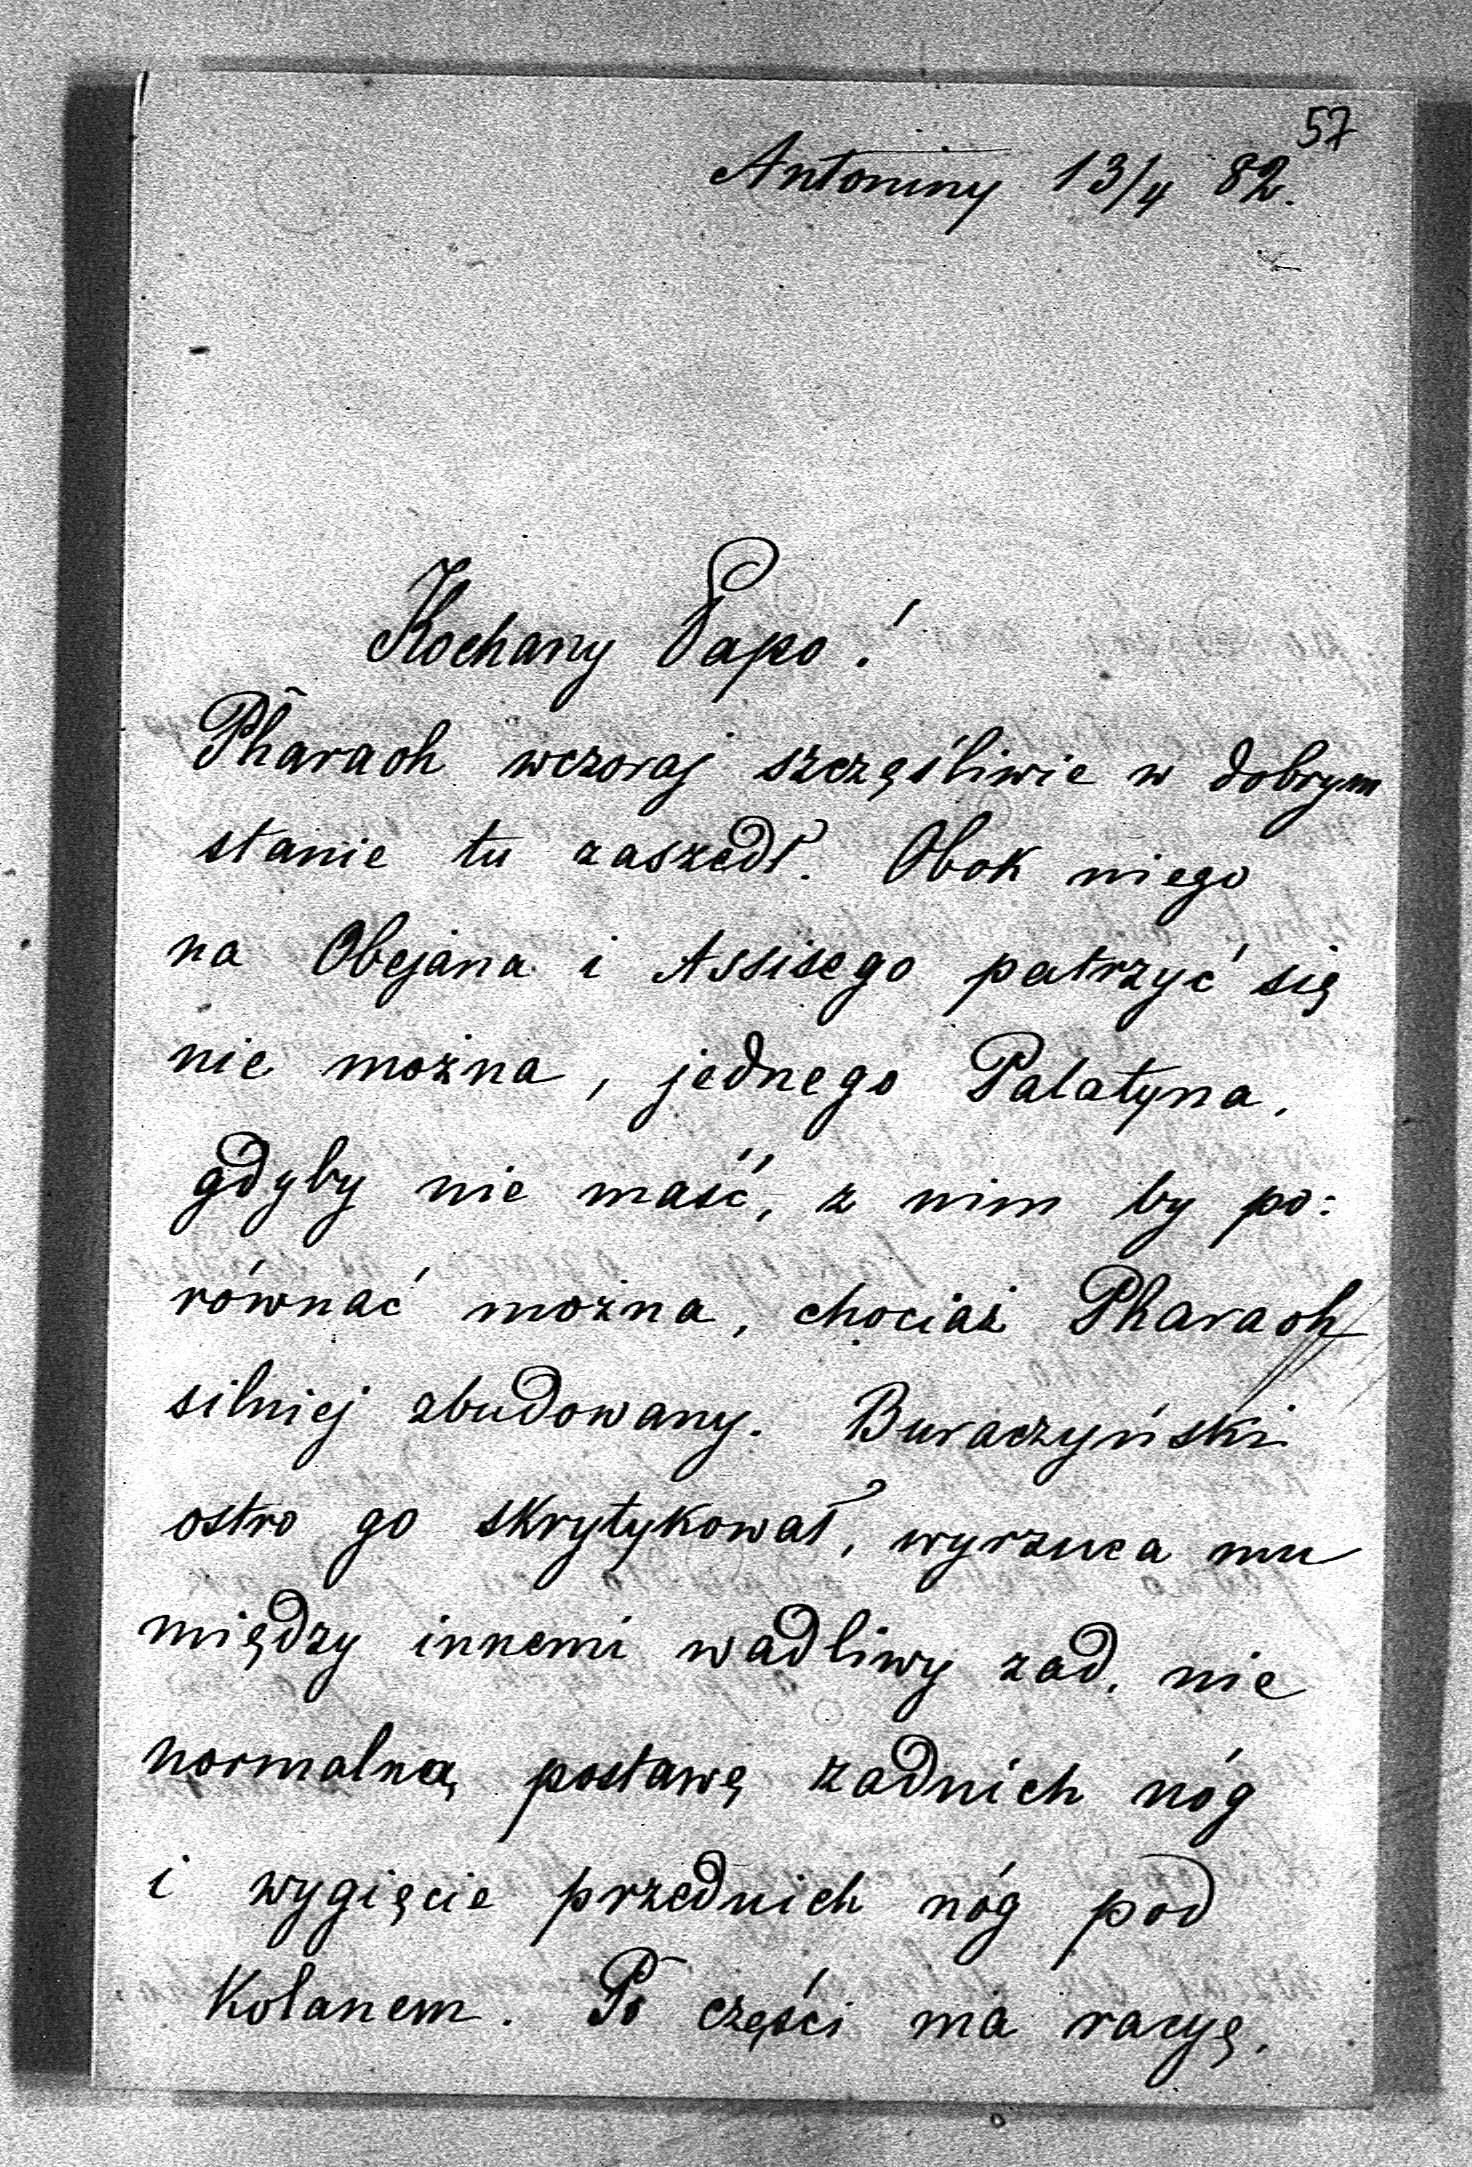 57
Antoniny 13/4 82.
Kochany Papo!
Pharaoh wczoraj szczęśliwie w dobrym
stanie tu zaszedł. Obok niego
na Obejana i Assisego patrzyć się
nie można, jednego Palatyna,
gdyby nie maść, z nim by po:
równać można, chociaż Pharaoh
silniej zbudowany. Buraczyński
ostro go skrytykował, wyrzuca mu
między innemi wadliwy zad, nie
normalną postawę zadnich nóg
i wygięcie przednich nóg pod
Kolanem. Po części ma racyę,